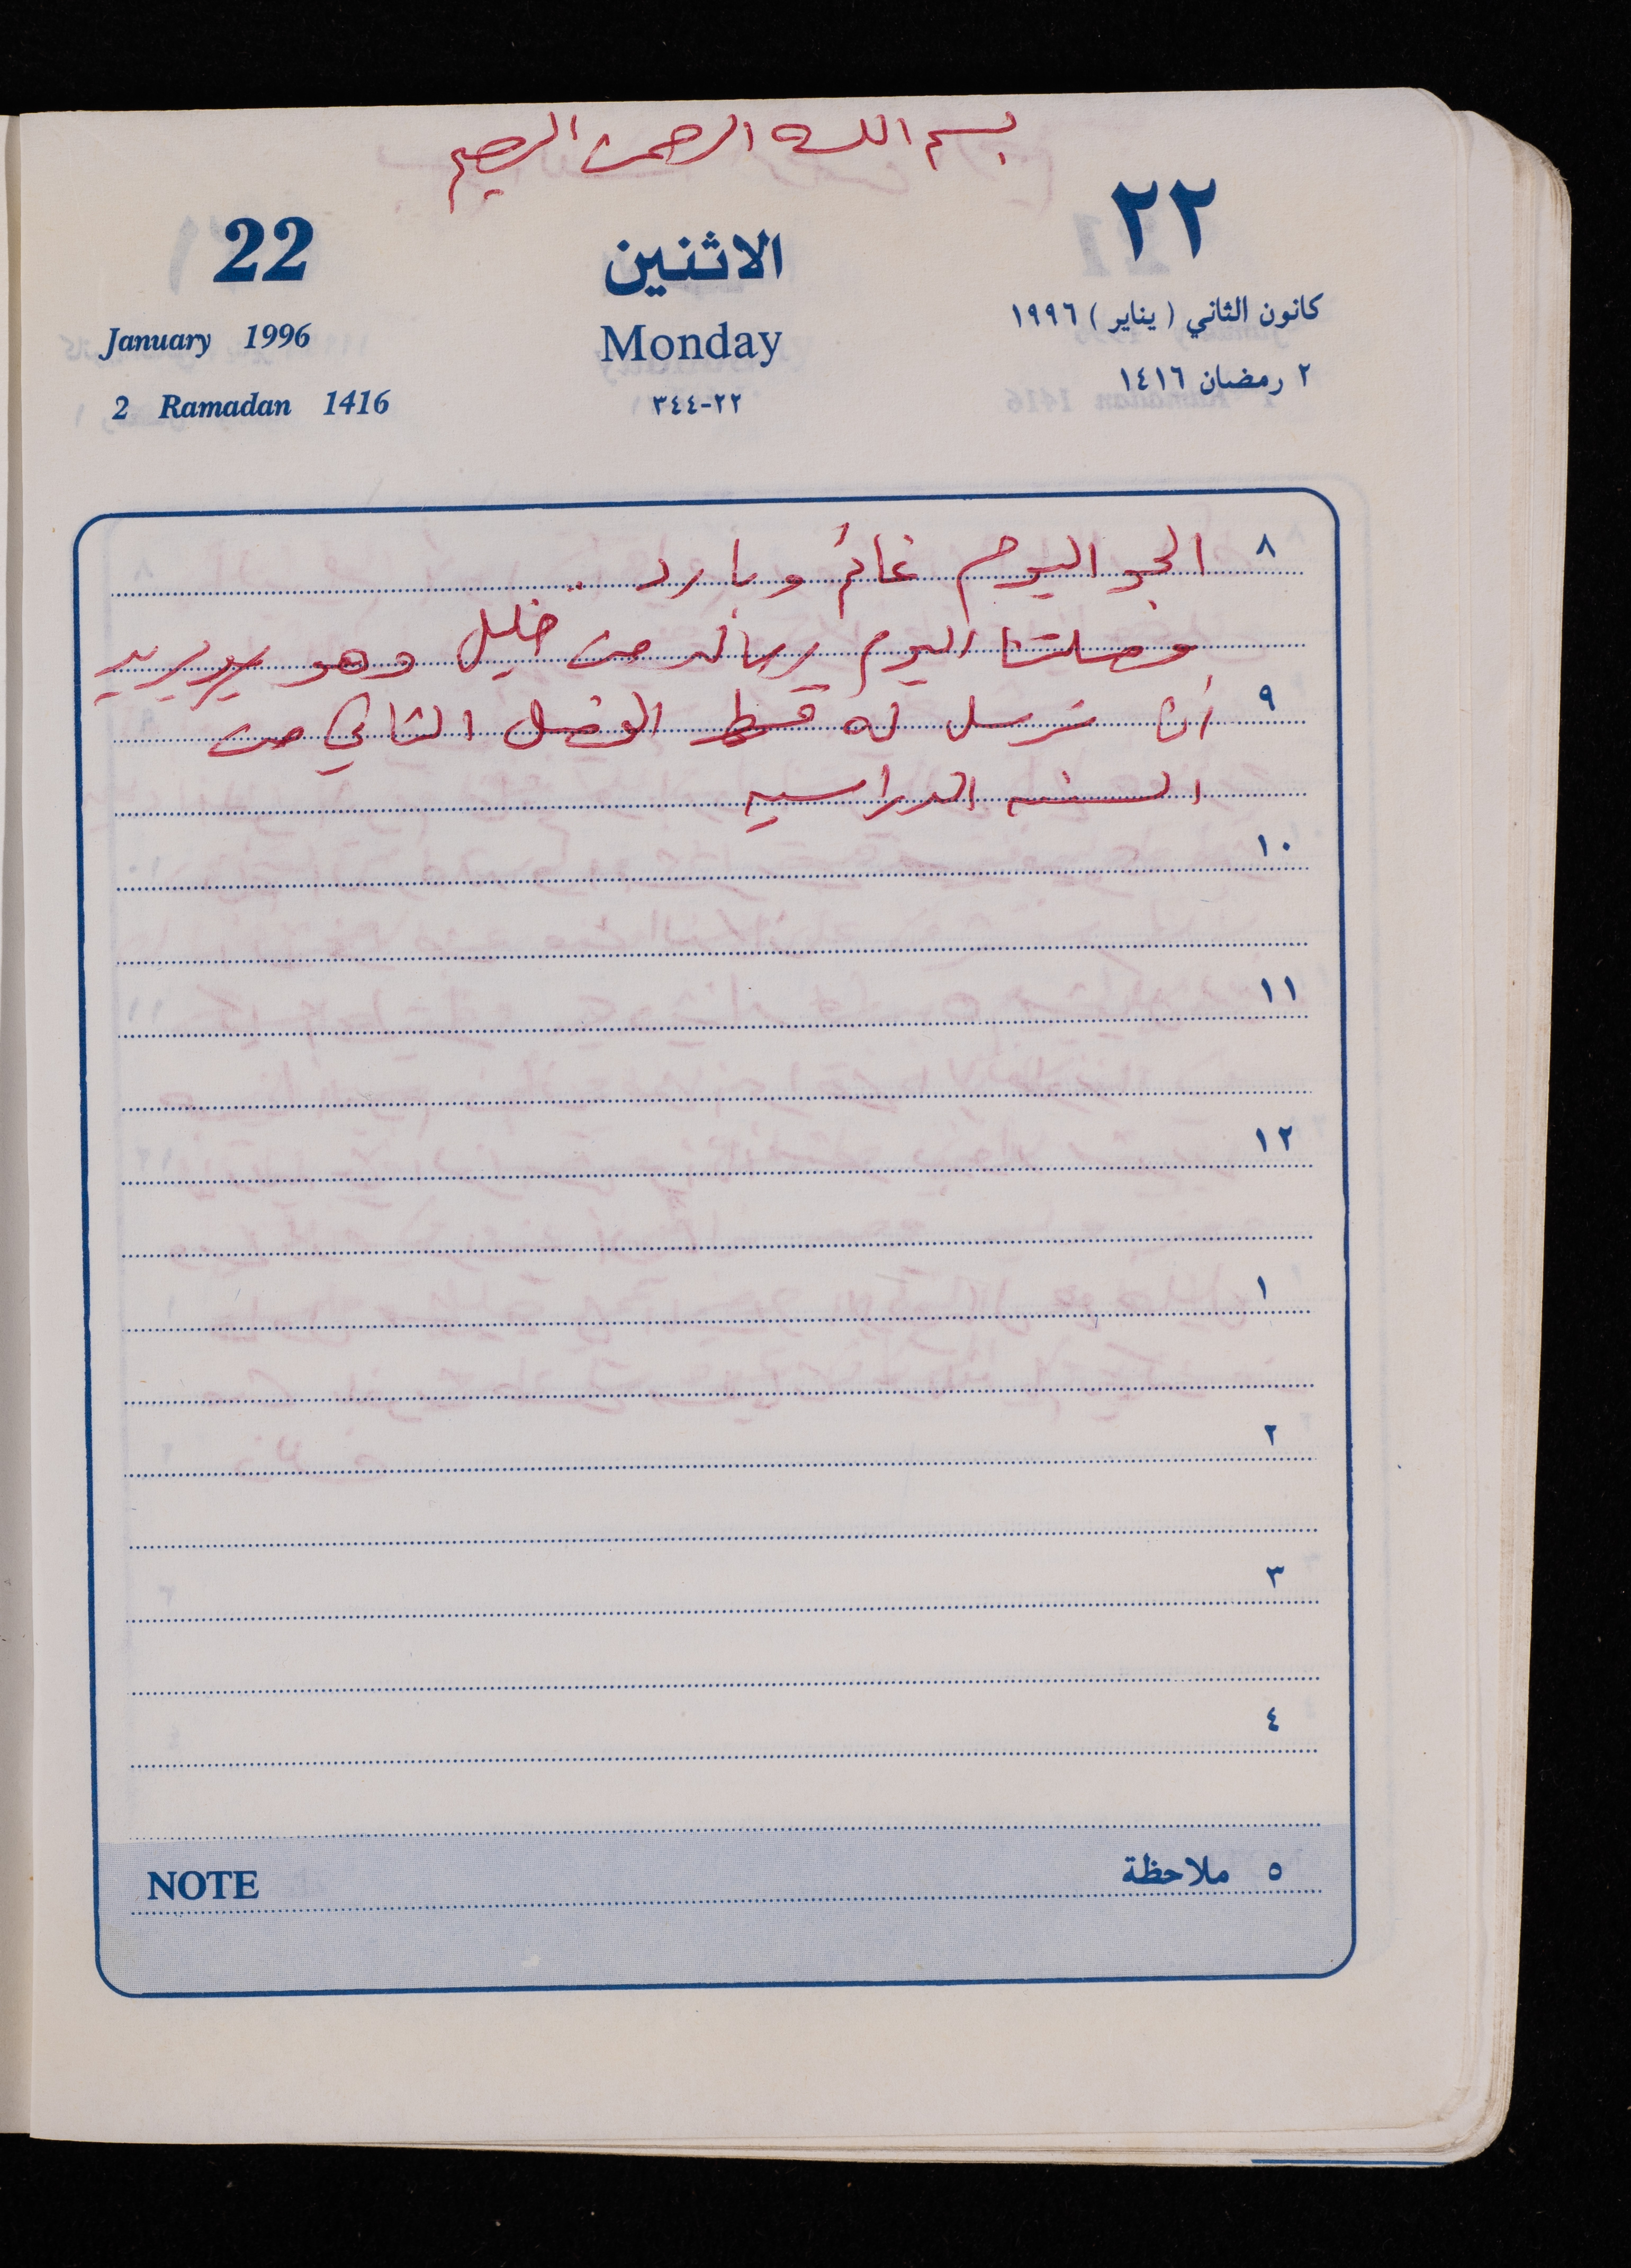 بسم الله الرحمن الرحيم
22 الاثنين ٢٢
January 1996 Monday كانون الثاني ( يناير ) ١٩٩٦
2 Ramadan 1416 ٢٢-٣٤٤ ٢ رمضان ١٤١٦
٨ الجو اليوم غائم وبارد ..
وصلتنا اليوم رسالة من خليل وهو يريد
٩ أن نرسل له قسط الفصل الثاني من
السنه الدراسيه
١٠
١١
١٢
١
٢
٣
٤
NOTE ٥ ملاحظة